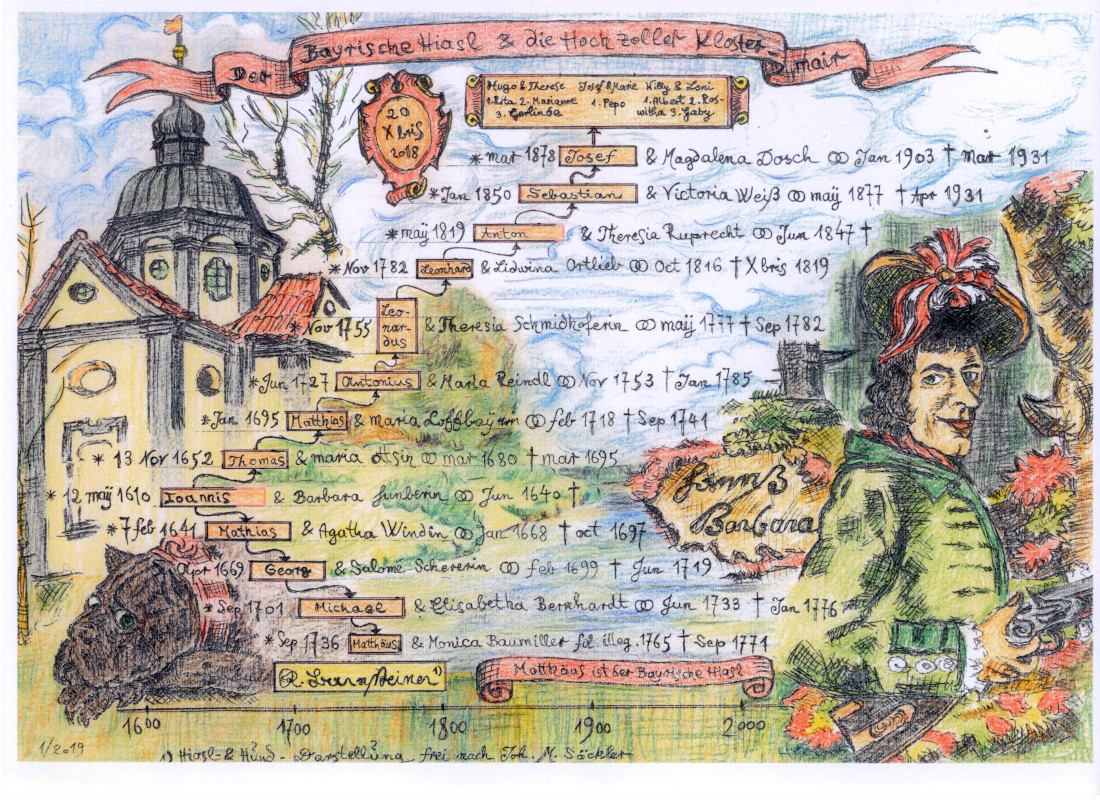 Der Bayrische Hiasl & die Hochzoller Kloster-mair
20
X bris
2018
Hugo & Therese Josef & Marie Willy & Loni
1. Rita 2. Marianne 1. Pepo 1. Albert 2. Ros-
3. Gerlinde witha 3. Gaby
* mar 1878 Josef & Magdalena Dosch ⚭ Jan 1903 † Mar 1931
* Jan 1850 Sebastian & Victoria Weiß ⚭ maÿ 1877 † Apr 1931
* maÿ 1819 Anton & Theresia Ruprecht ⚭ Jun 1847 †
* Nov 1782 Leonhard & Lidwina Ortlieb ⚭ Oct 1816 † X bris 1819
* Nov 1755 Leo-nar-dus & Theresia Schmidhoferin ⚭ maÿ 1777 † Sep 1782
* Jun 1727 Antonius & Maria Reindl ⚭ Nov 1753 † Jan 1785
* Jan 1695 Matthias & maria ⚭ feb 1718 † Sep 1741
* 13 Nov 1652 Thomas & maria ⚭ mar 1680 † mar 1695
* 12 maÿ 1610 Ioannis & Barbara ⚭ Jun 1640 †
* 7 feb 1641 Mathias & Agatha Windin ⚭ Jan 1668 † oct 1697
Apr 1669 Georg & Salome Schererin ⚭ feb 1699 † Jun 1719
* Sep 1701 Michael & Elisabetha Bernhardt ⚭ Jun 1733 † Jan 1776
* Sep 1736 Matthäus & Monica Baumiller fil illeg. 1765 † Sep 1771
Barbara
R. 1)
Matthäus ist der Bayrische Hiasl
1600 1700 1800 1900 2000
1/2019
1) Hiasl- & Hund- Darstellung frei nach Joh. M. Söckler